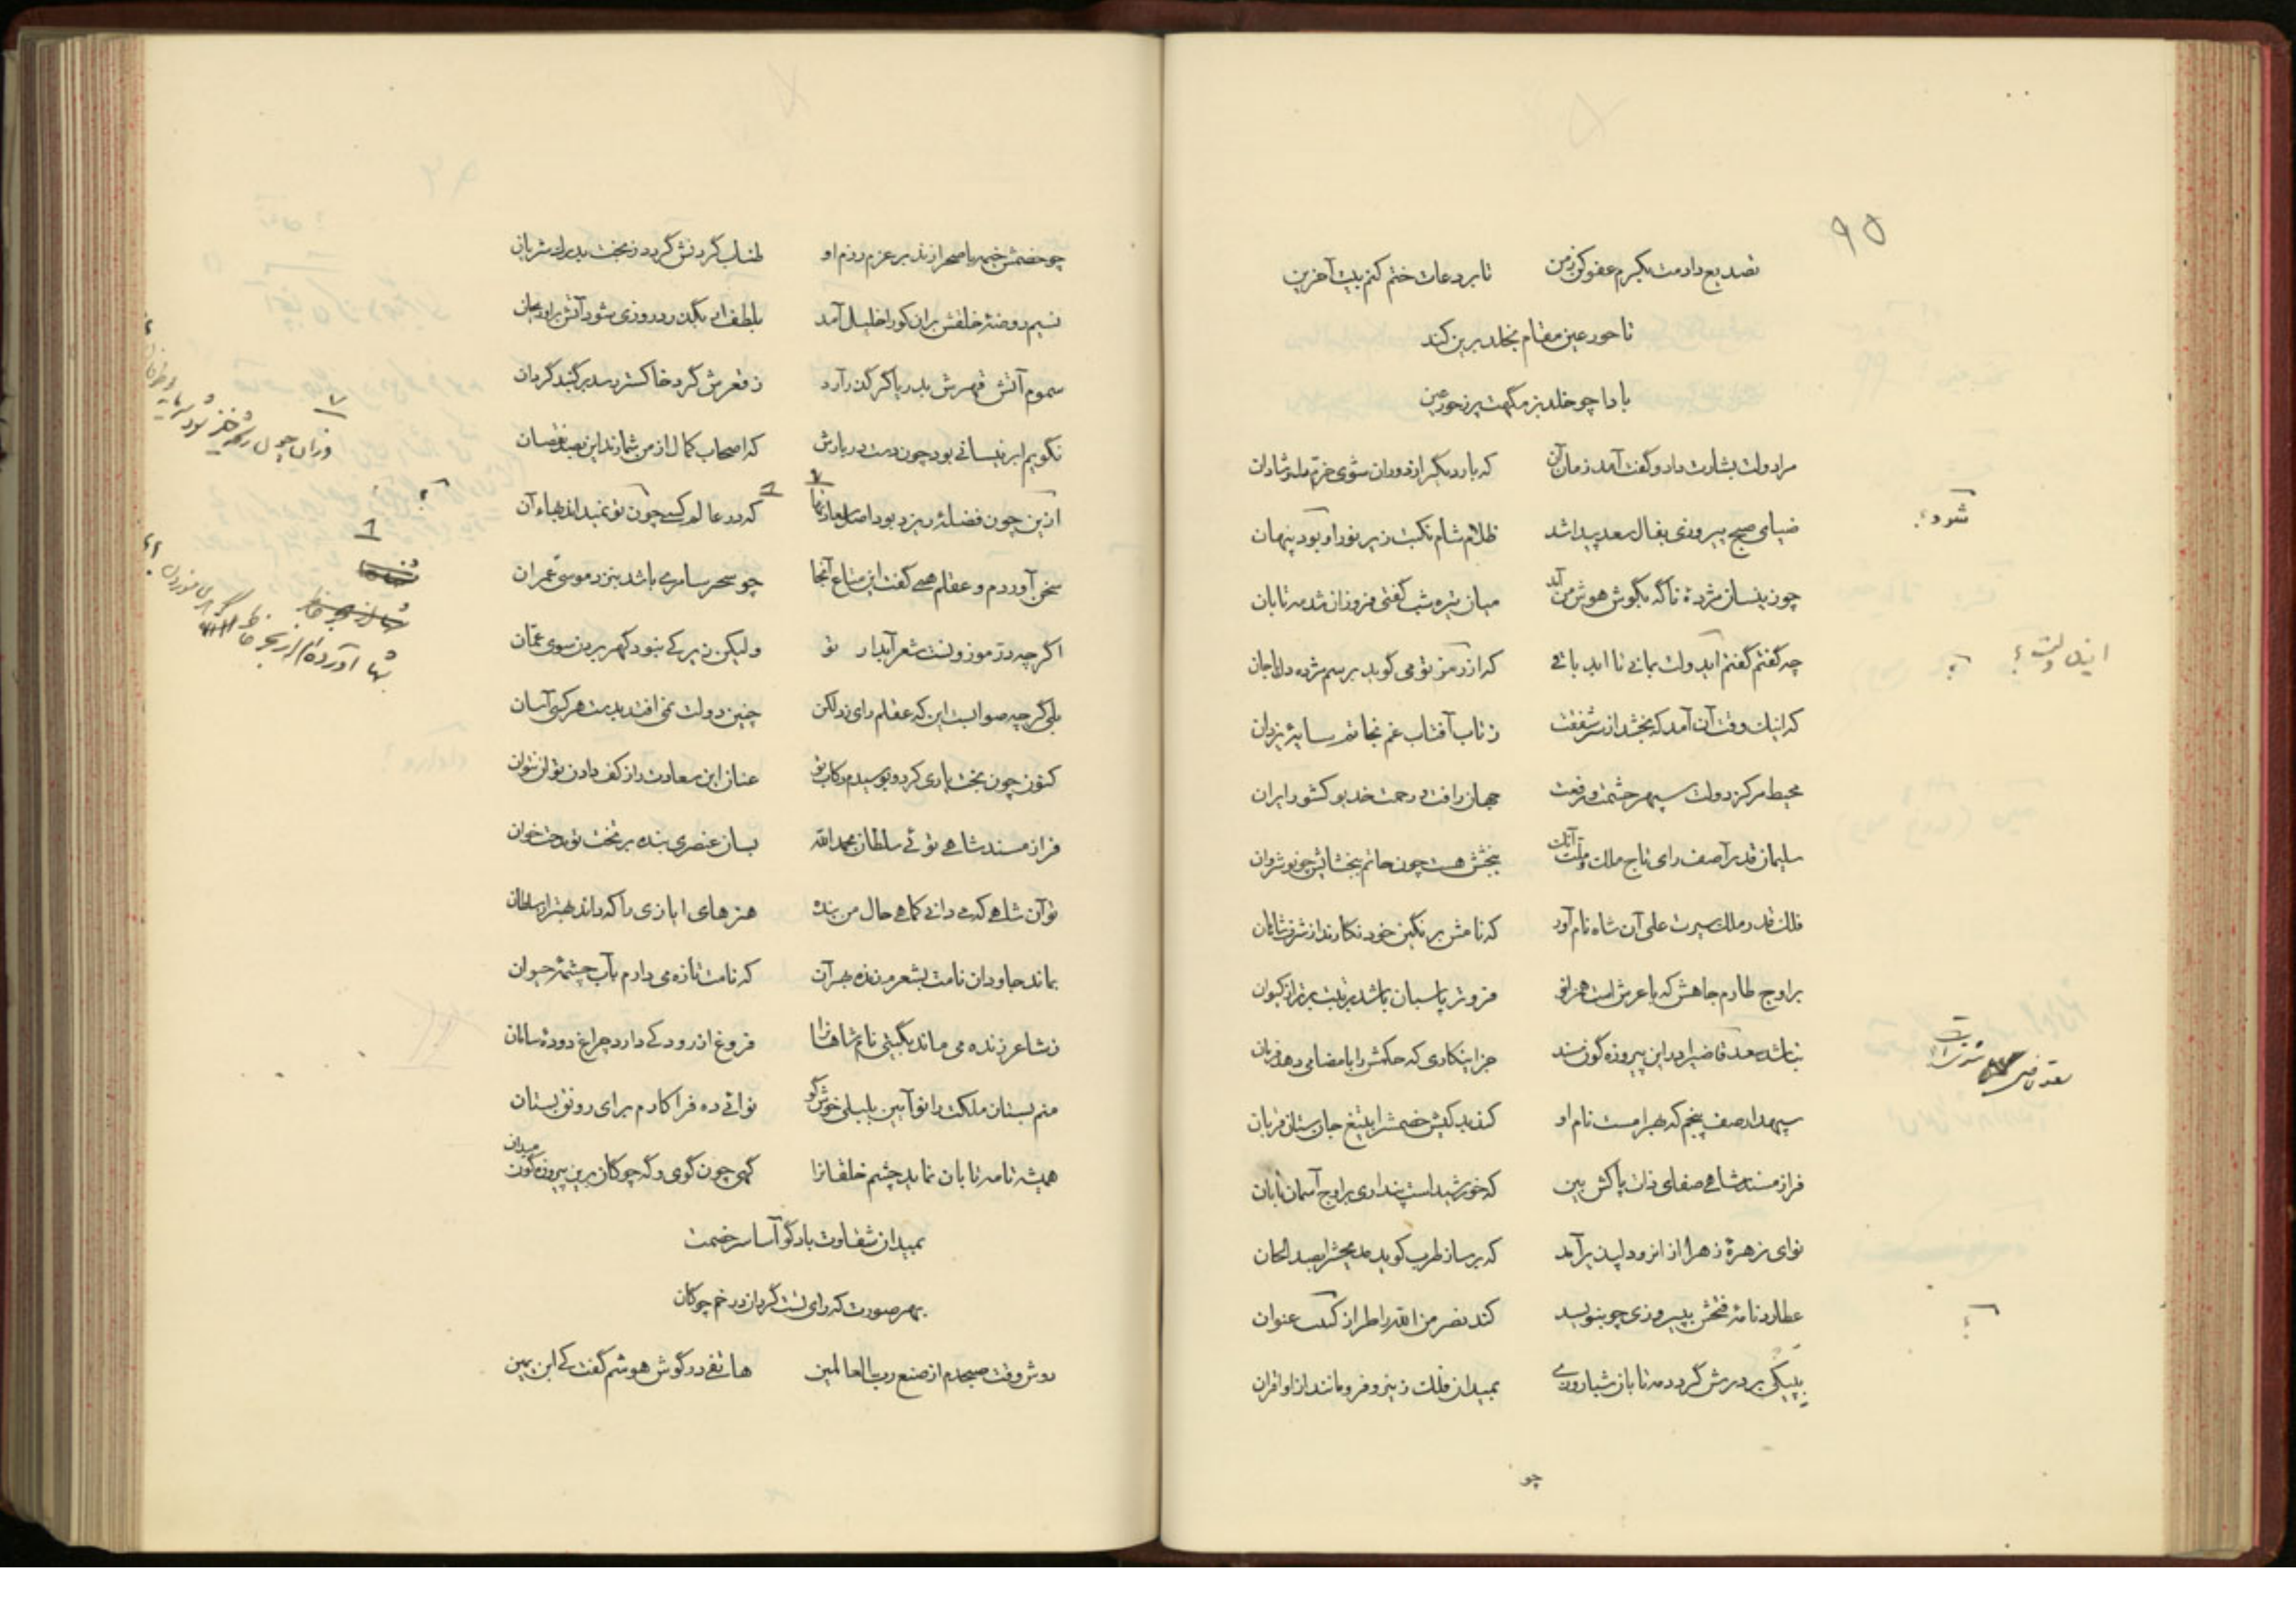 ۹۵
تصدیع دادمت بکرم عفو کن ز من تا بر دعات ختم کنم بیت آخرین
تا حور عین مقام بخلد برین کند
بادا چو خلد بزمگهت پر ز حور عین
مرا دولت بشارت داد و گفت آمد زمان آن که بار دیگر از دوران شوی خرم دل و شادان
ضیای صبح پیروزی بفال سعد پیدا شد ظلام شام نکبت زیر نور او بود پنهان
چون زینسان مژدهٔ ناگه بگوش هوش من آمد میان تیره شب گفتی فروزان شد مه تابان
چه گفتم گفتم ای دولت بمانی تا ابد باقی که از تو می گوید برسم مژده دل با جان
که اینک وقت آن آمد که بخشد از سر شفقت ز تاب آفتاب غم نجاتم سایهٔ یزدان
محیط مرکز دولت سپهر حشمت و رفعت جهان رافت و رحمت خدیو کشور ایران
سلیمان قدر آصف رای تاج ملک و ملت آنک ببخشش هست چون حاتم ببخشایش چو نوشروان
فلک قدر ملک سیرت علی آن شاه نام آور که نامش بر نگین خود نگارند از شرف شاهان
بر اوج طارم جاهش که با عرش است همزانو فروتر پاسبان باشد برتبت برتر از کیوان
نباشد سعد قاضی را درین پیروزه گون مسند جز اینکاری که حکمش را بامضا می دهد فرمان
سپهدار صف پنجم که بهرامست نام او کند بد کیش خصمش را بتیغ جان ستان قربان
فراز مسند شاهی صفای ذات پاکش بین که خورشید است پنداری بر اوج آسمان تابان
نوای زهرهٔ زهرا از انرو دلپذیر آمد که بر ساز طرب گوید مدیحش را بصد الحان
عطارد نامهٔ فتحش بپیروزی چو بنویسد کند نصر من الله را طراز عنوان
بپیکی بر درش گردد مه تابان شبان روزی بمیدان فلک زینرو فرو ماند از او اقران
چو
شود؟
چو خصمش خیمه با صحرا زند بر عزم رزم او طناب گردنش گردد ز بخت بد رگ شریان
نسیم روضهٔ خلقش بران کو را خلیل آمد بلطف ار بگذرد روزی شود آتش برو ریحان
سموم آتش قهرش بدریا گر گذر آرد ز قعرش گرد خاکستر رسد بر گنبد گردان
نگویم ابر نیسانی بود چون دست دربارش که اصحاب کمال از من شمارند این بصد نقصان
ازین چون فضلهٔ ریزد بود که در عالم کسی چون تو نمیداند بهاء آن
سخن آوردم و عقلم همی گفت این متاع آنجا چو سحر سامری باشد بنزد موسی عمران
اگرچه در موزونست شعر آبدار تو ولیکن زیرکی نبود گهر بردن سوی عمان
بلی گرچه صوابست این که عقلم رای زد لکن چنین دولت نمی افتد بدست هر کسی آسان
کنون چون بخت یاری کرد و بوسیدم رکاب تو عنان این سعادت را ز کف دادن توان نتوان
فراز مسند شاهی توئی سلطان بحمدالله بسان عنصری بنده بر تخت تو مدحت خوان
تو آن شاهی که می دانی کماهی حال من بنده هنرهای ایازی را که داند بهتر از سلطان
بماند جاودان نامت بشعر من بدهر آن که نامت تازه می دارم بآب چشمهٔ حیوان
ز شاعر زنده می ماند بگیتی نام شاهانرا فروغ از رودکی دارد چراغ دودهٔ سامان
منم بستان ملکت را نوآیین بلبلی خوشگو نوائی ده فرا کارم برای رونق بستان
همیشه تا مه تابان نماید چشم خلقانرا گهی چون گوی و گه چوگان برین پیروزه گون میدان
بمیدان شقاوت باد گو آسا سر خصمت
بهر صورت که رای تست گردان در خم چوگان
دوش وقت صبحدم از صنع رب العالمین هاتفی در گوش هوشم گفت کای ابن یمین